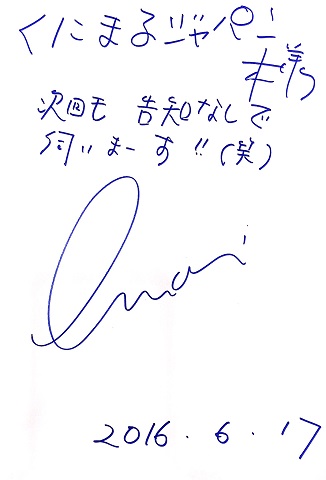 くにまるジャパン
様
次回も 告知なしで
伺いまーす!!(笑)
2016.6.17